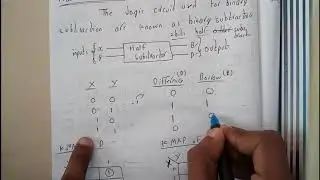 The logic circuit used for binary
subtraction are known as binary subtractor
2bits half
inputs X Half B output
Y subtractor D
X Y Difference(D) Borrow(B)
0 0 0 0
0 1 1 1
1 0 1 0
1 1 0
K-MAP D K-MAP